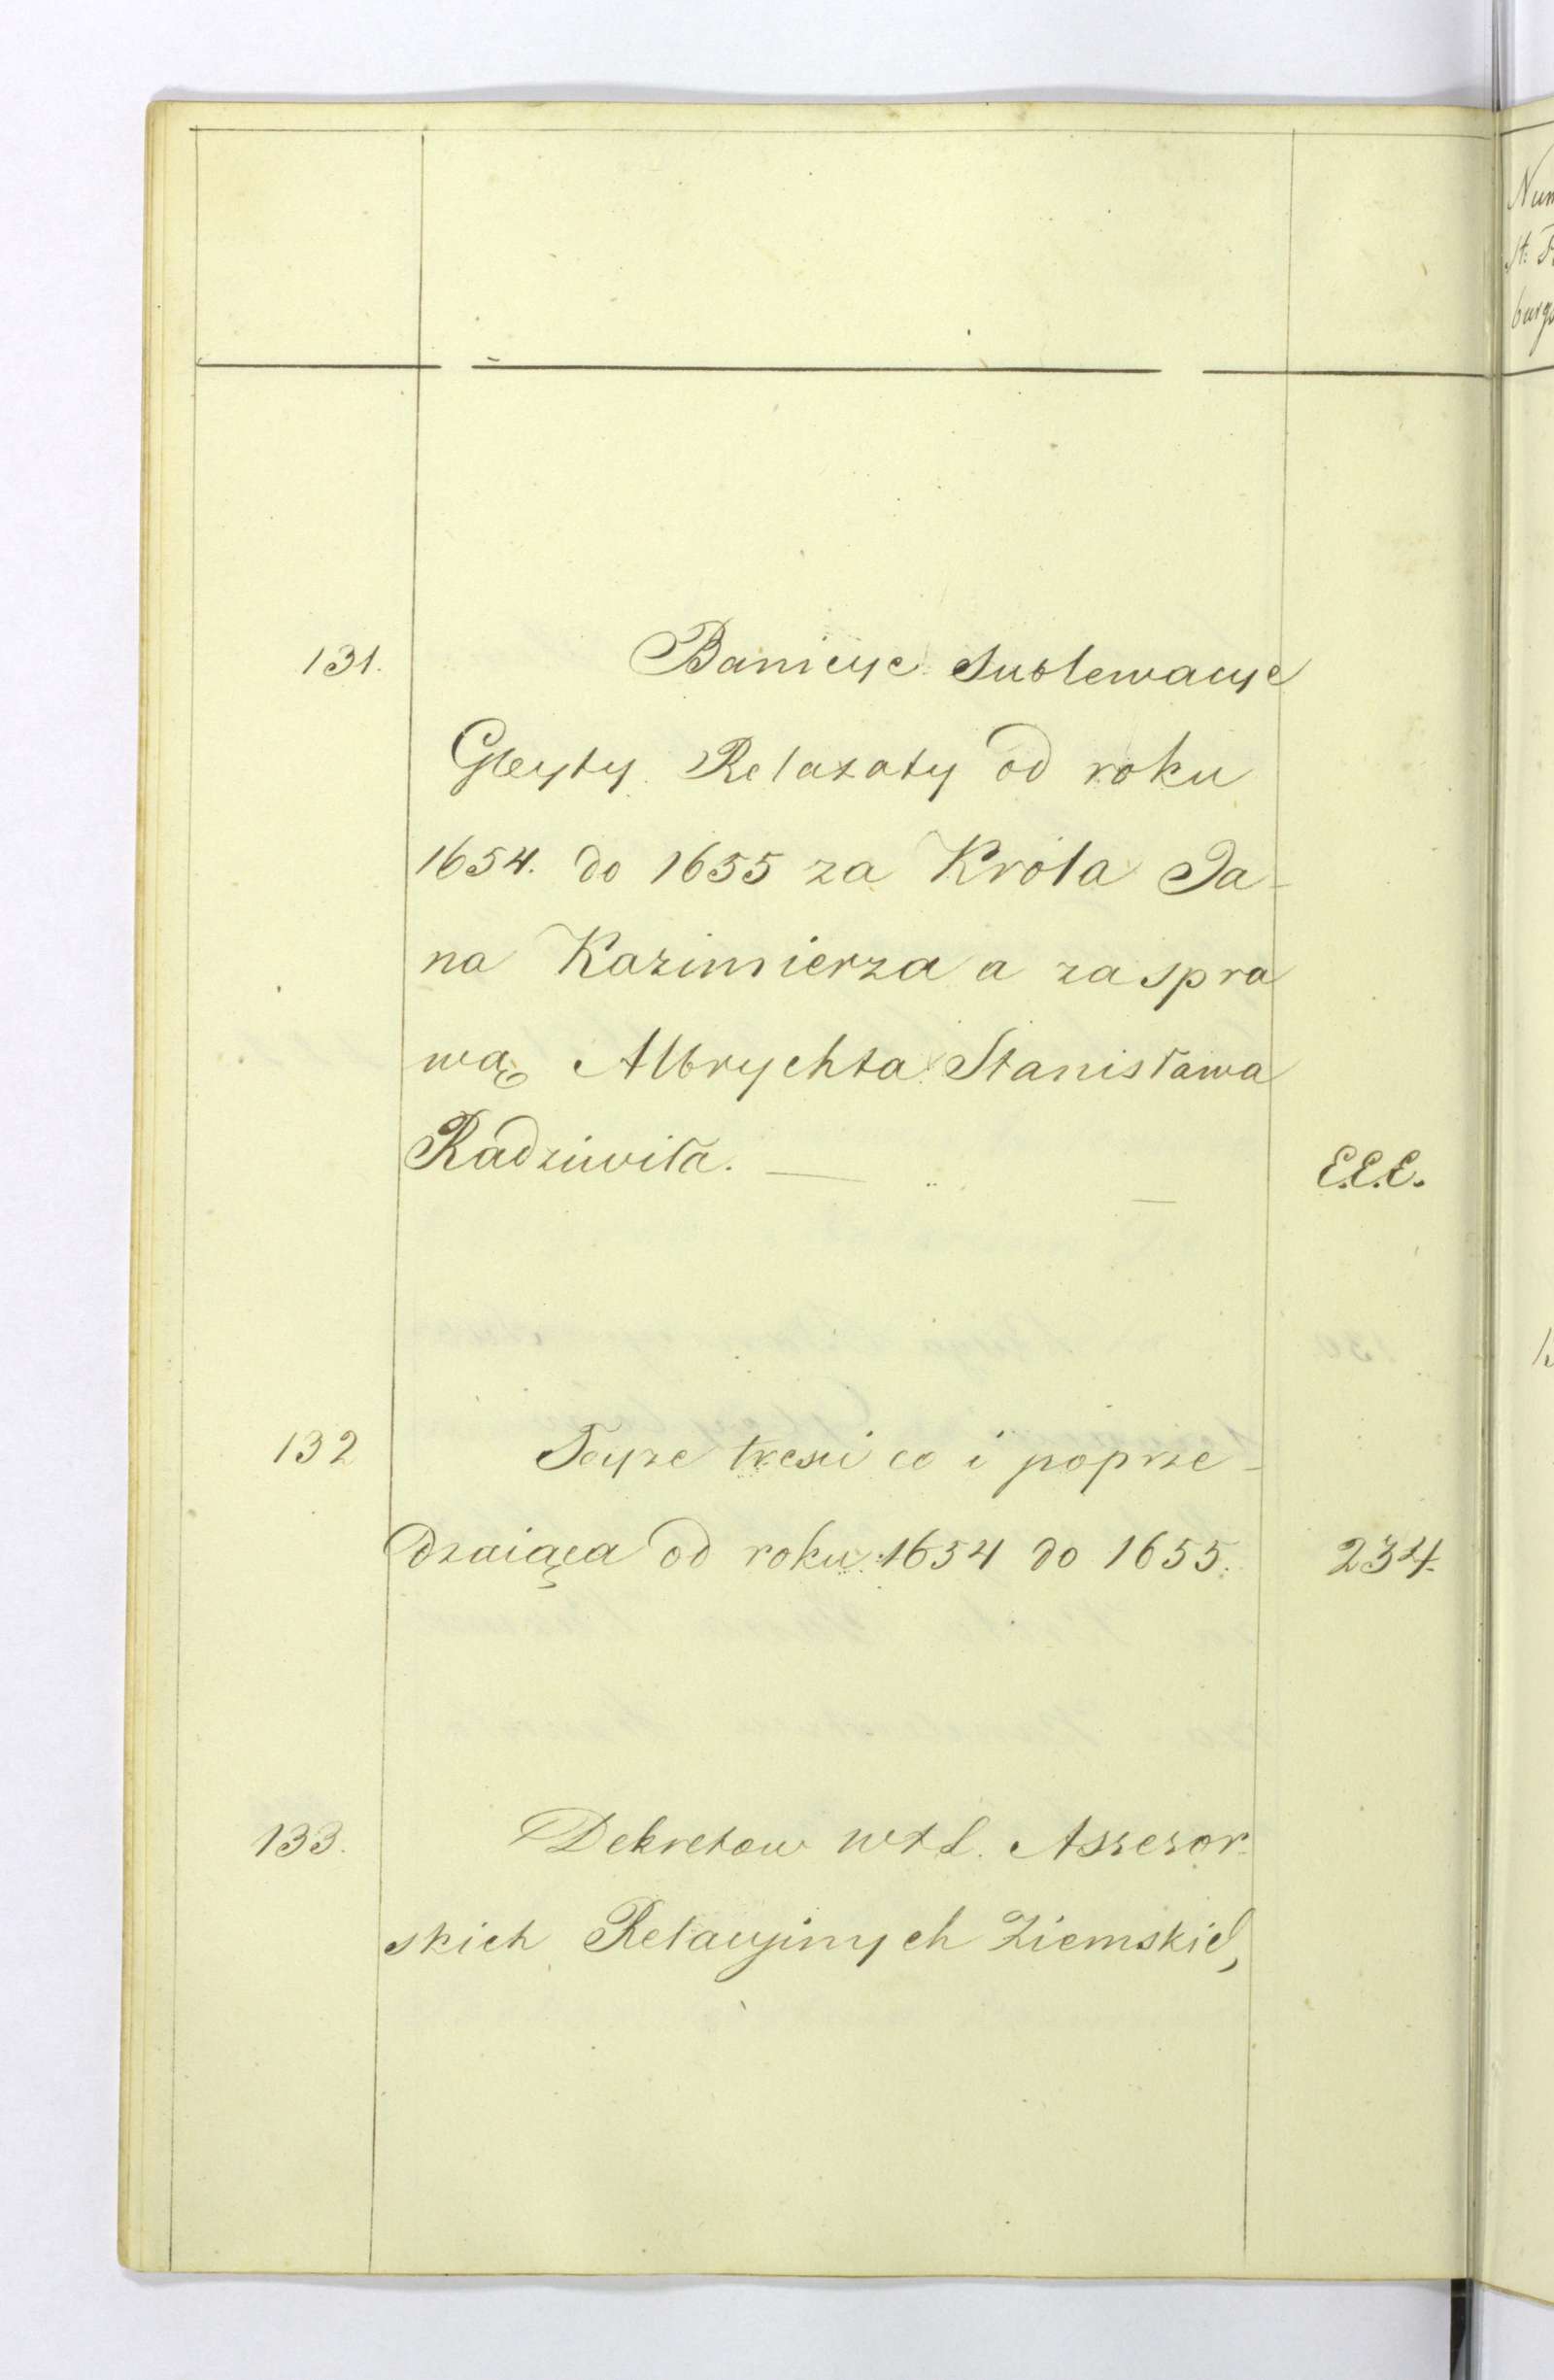 131. Banicye Sublewacye
Gleyty Relaxaty od roku
1654. do 1655 za Króla Ja-
na Kazimierza a za spra
wą Albrychta Stanisława
Radziwiła. — E.E.E.
132 Teyze tresci co i poprze-
dzaiąca od roku 1654 do 1655. 234.
133. Dekretow WXL. Asseszor-
skich Relacyinych Ziemskich,
Num
St. P
burg